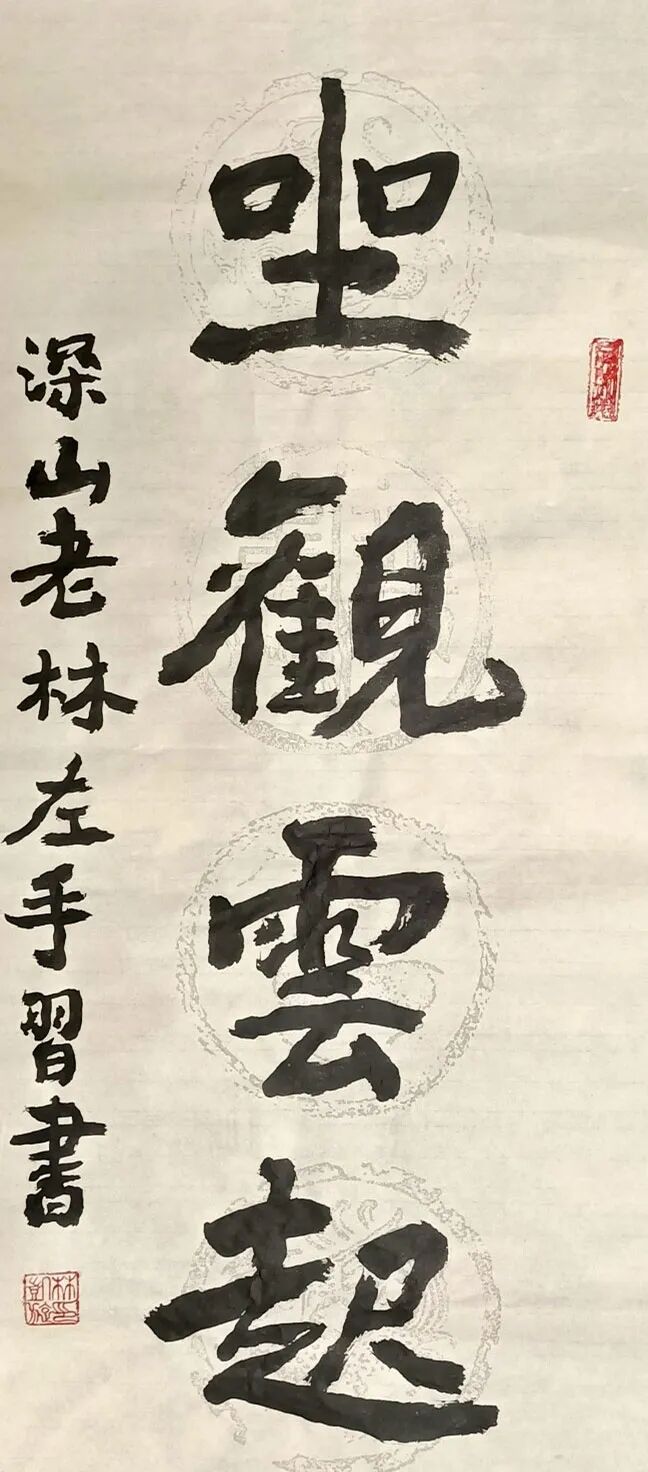 坐觀雲起
深山老林左手習書